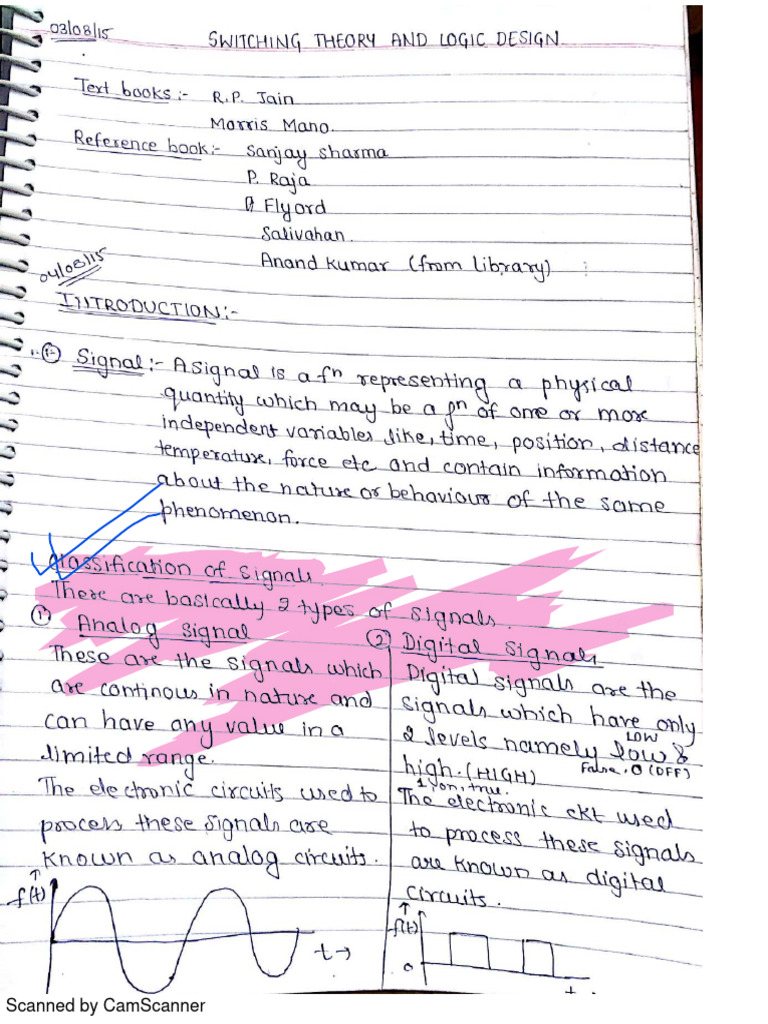 03/08/15
SWITCHING THEORY AND LOGIC DESIGN
Text books:- R.P. Jain
Morris Mano.
Reference book:- Sanjay Sharma
P. Raja
Flyord
Salivahan.
Anand Kumar (from library)
04/08/15
INTRODUCTION:-
① Signal:- A signal is a fⁿ representing a physical
quantity which may be a fⁿ of one or more
independent variables like, time, position, distance
temperature, force etc and contain information
about the nature or behaviour of the same
phenomenon.
classification of signals.
There are basically 2 types of signals.
① Analog signal
These are the signals which
are continous in nature and
can have any value in a
limited range.
The electronic circuits used to
process these signals are
known as analog circuits.
f(t)
t→
② Digital signals
Digital signals are the
signals which have only
2 levels namely low &
LOW
high. (HIGH) False, 0 (OFF)
1, on, true.
The electronic ckt used
to process these signals
are known as digital
circuits.
f(t)
0
t
Scanned by CamScanner